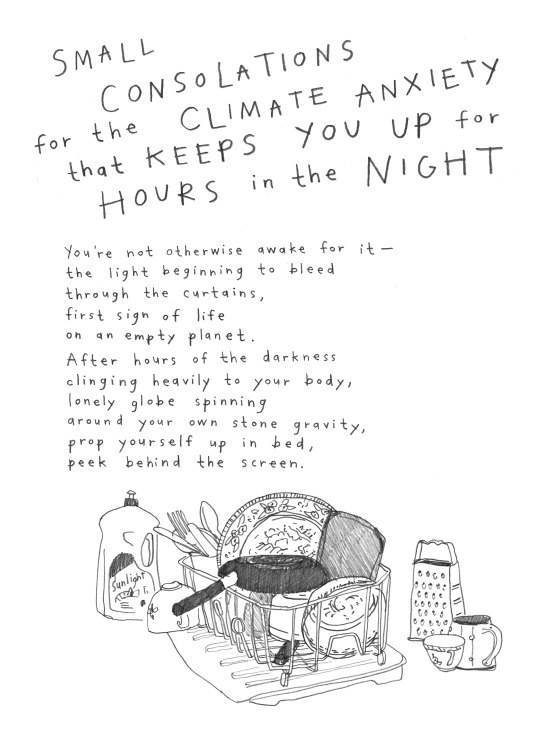 SMALL
CONSOLATIONS
for the CLIMATE ANXIETY
that KEEPS YOU UP for
HOURS in the NIGHT
You're not otherwise awake for it—
the light beginning to bleed
through the curtains,
first sign of life
on an empty planet.
After hours of the darkness
clinging heavily to your body,
lonely globe spinning
around your own stone gravity,
prop yourself up in bed,
peek behind the screen.
Sunlight